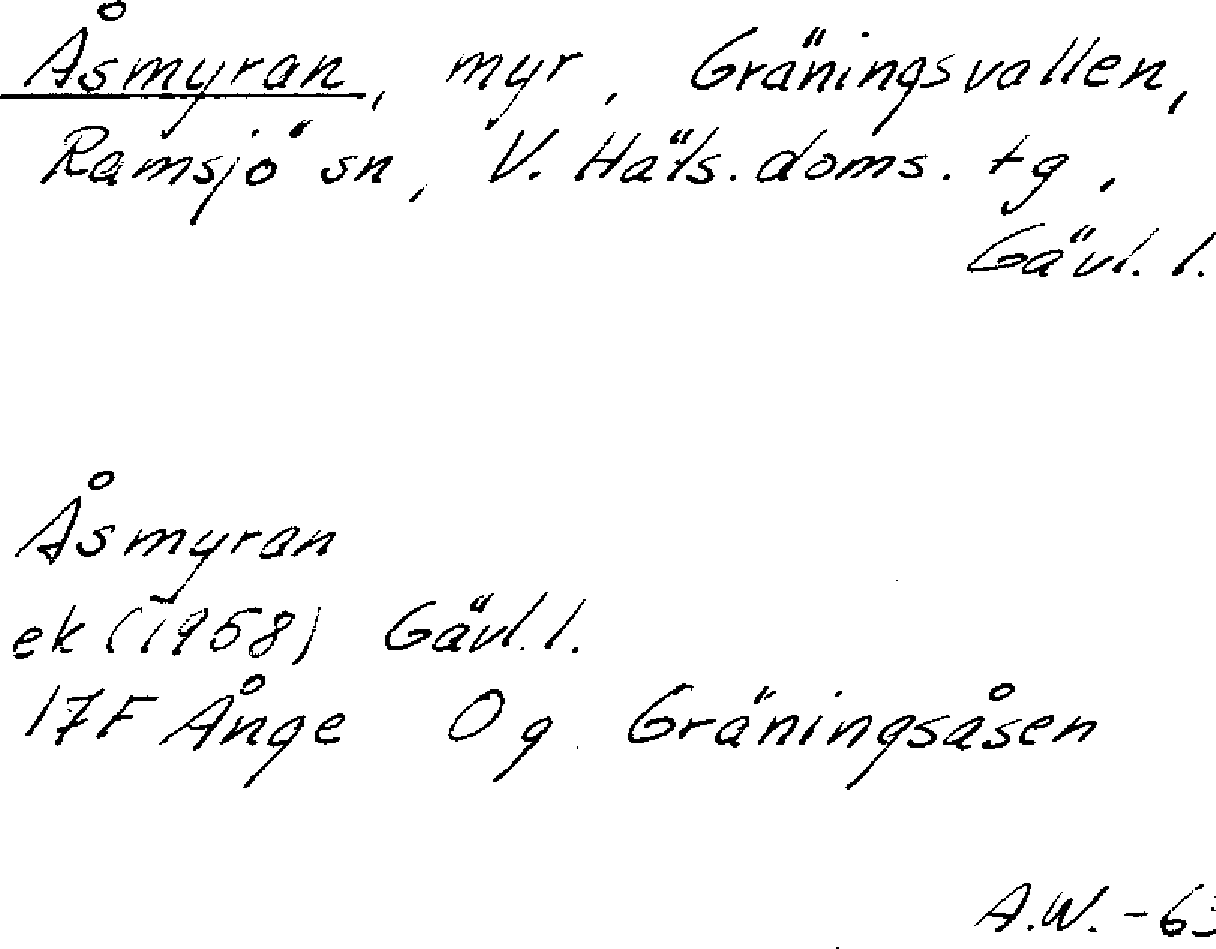 Åsmyran, myr, Gräningsvallen,
Ramsjö sn, V. Häls. doms. tg,
Gävl. l.
Åsmyran
ek (1958) Gävl. l.
17F Ånge 0g Gräningsåsen
A.W. -63